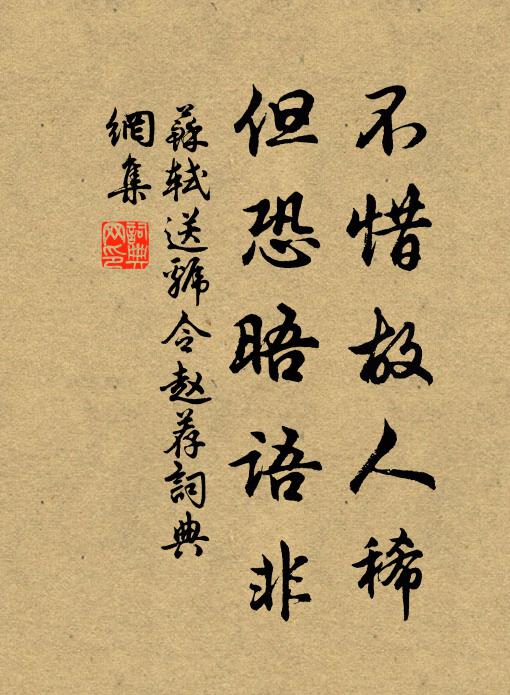 不惜故人稀
但恐晤语非
蘇軾送虢令赵荐詞典
網集
詞典网印